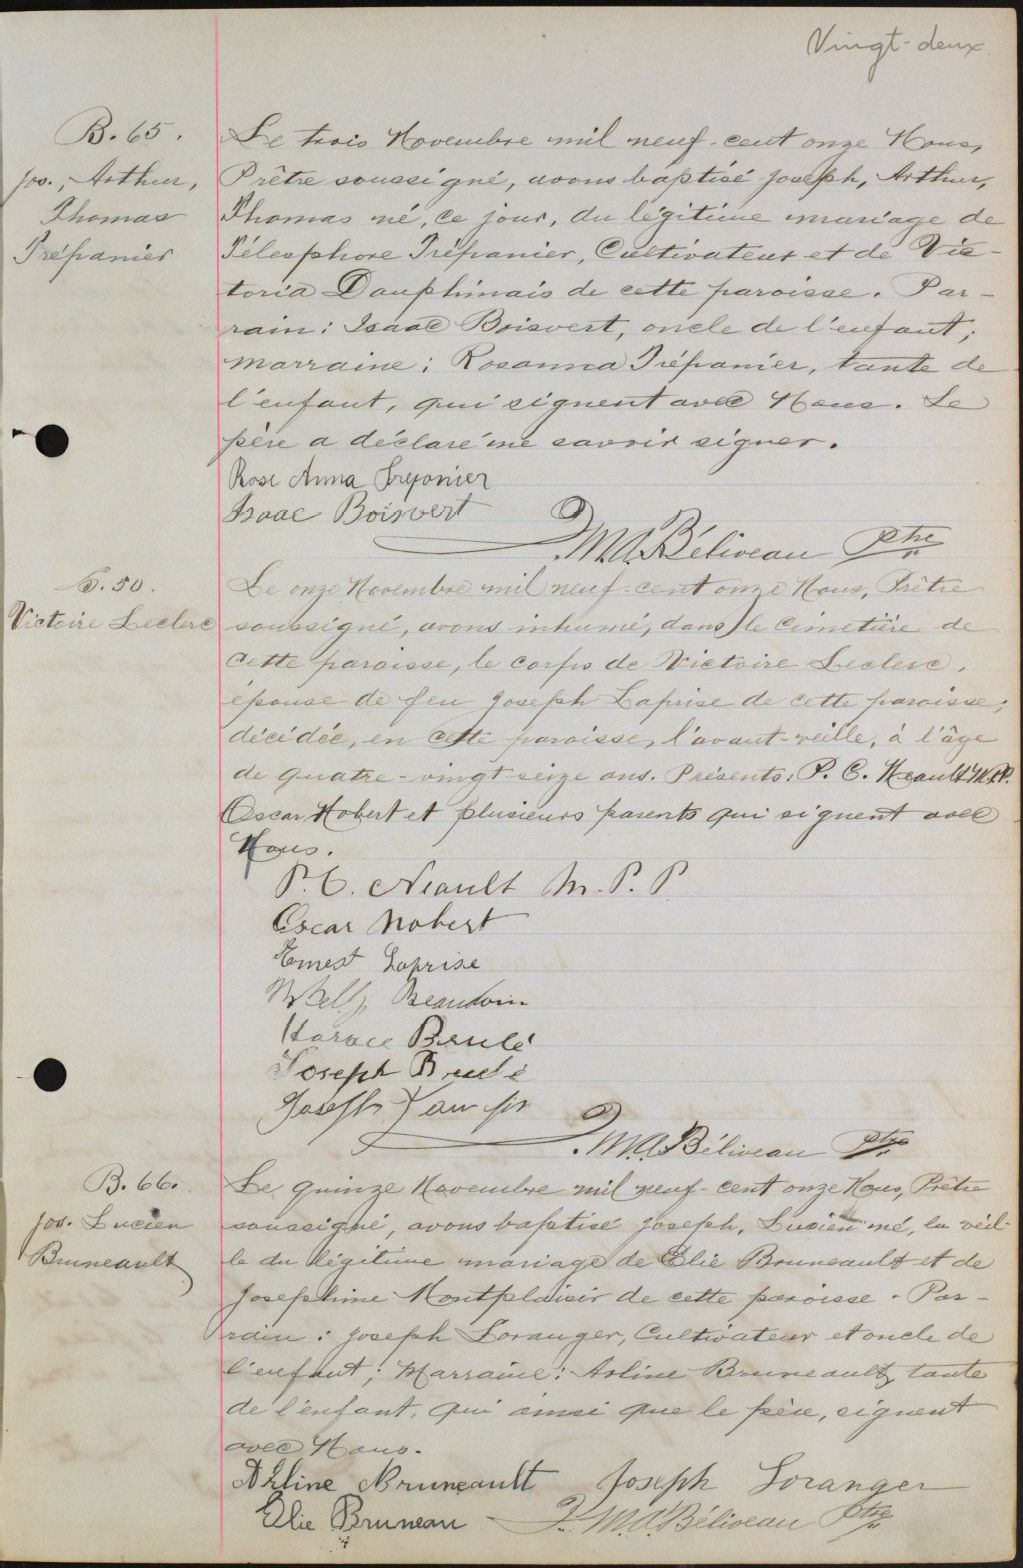 Vingt-deux
B. 65.
Jos., Arthur,
Thomas
Trépanier
Le trois Novembre mil neuf-cent onze Nous,
Prêtre soussigné, avons baptisé Joseph, Arthur,
Thomas né, ce jour, du légitime mariage de
Télesphore Trépanier, Cultivateur et de Vic-
toria Dauphinais de cette paroisse. Par-
rain: Isaac Boisvert, oncle de l'enfant;
marraine: Rosanna Trépanier, tante de
l'enfant, qui signent avec Nous. Le
père a déclaré ne savoir signer.
Rose Anna Trepanier
Isaac Boisvert
J. M. A. Béliveau Ptre
S. 50.
Victoire Leclerc
Le onze Novembre mil neuf-cent onze Nous, Prêtre
soussigné, avons inhumé, dans le cimetière de
cette paroisse, le corps de Victoire Leclerc,
épouse de feu Joseph Laprise de cette paroisse;
décédée, en cette paroisse, l'avant-veille, à l'âge
de quatre-vingt-seize ans. Présents: P. C. Neault M.P.P.
Oscar Nobert et plusieurs parents qui signent avec
Nous.
P. C. Neault M. P. P
Oscar Nobert
Ernest Laprise
Beaudoin
Horace Brulé
Joseph Brulé
Joseph
J. M. A. Béliveau Ptre
B. 66.
Jos. Lucien
Bruneault
Le quinze Novembre mil neuf-cent onze Nous, Prêtre
soussigné, avons baptisé Joseph, Lucien né, la veil-
le du légitime mariage de Elie Bruneault et de
Joséphine Montplaisir de cette paroisse. Par-
rain: Joseph Loranger, Cultivateur et oncle de
l'enfant; Marraine: Arline Bruneault, tante
de l'enfant, qui ainsi que le père, signent
avec Nous.
Arline Bruneault Joseph Loranger
Elie Bruneau J. M. A. Béliveau Ptre